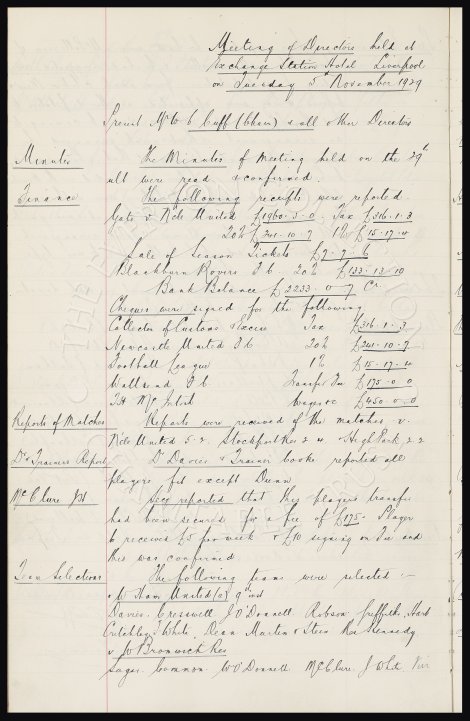 Meeting of Directors held at
Exchange Station Hotel Liverpool
on Tuesday 5th November 1929
Present Mr W C Cuff (Chair) & all other Directors
Minutes The Minutes of Meeting held on the 29th
ult were read & confirmed.
Finance The following receipts were reported.
Gate v N'cle United £1960.3.0 Tax £316.1.3
20% £241.10.7 1% £15.17.4
Sale of Season Tickets £7.7.6
Blackburn Rovers F C 20% £133.13.10
Bank Balance £2233.0.7 Cr
Cheques were signed for the following
Collector of Customs & Excise Tax £316.1.3
Newcastle United F C 20% £241.10.7
Football League 1% £15.17.4
Wallsend F C Transfer Fee £175.0.0
T H McIntosh Wages &c £450.0.0
Reports of Matches Reports were received of the matches v.
N'cle United 5.2. Stockport Res 2.4 High Park 2.2
Dr & Trainers Report Dr Davies & Trainer books reported all
players fit except Dunn
McClure Jos Secy reported that this players transfer
had been secured for a fee of £175. Player
to receive £5 per week & £10 signing on Fee and
this was confirmed.
Team Selections The following teams were selected:-
v W Ham United (a) 9th inst
Davies. Cresswell J O'Donnell Robson Griffiths, Hart
Critchley T White, Dean Martin & Stein Res Kennedy
v W Bromwich Res
Sagar. Common W O'Donnell McClure. J White